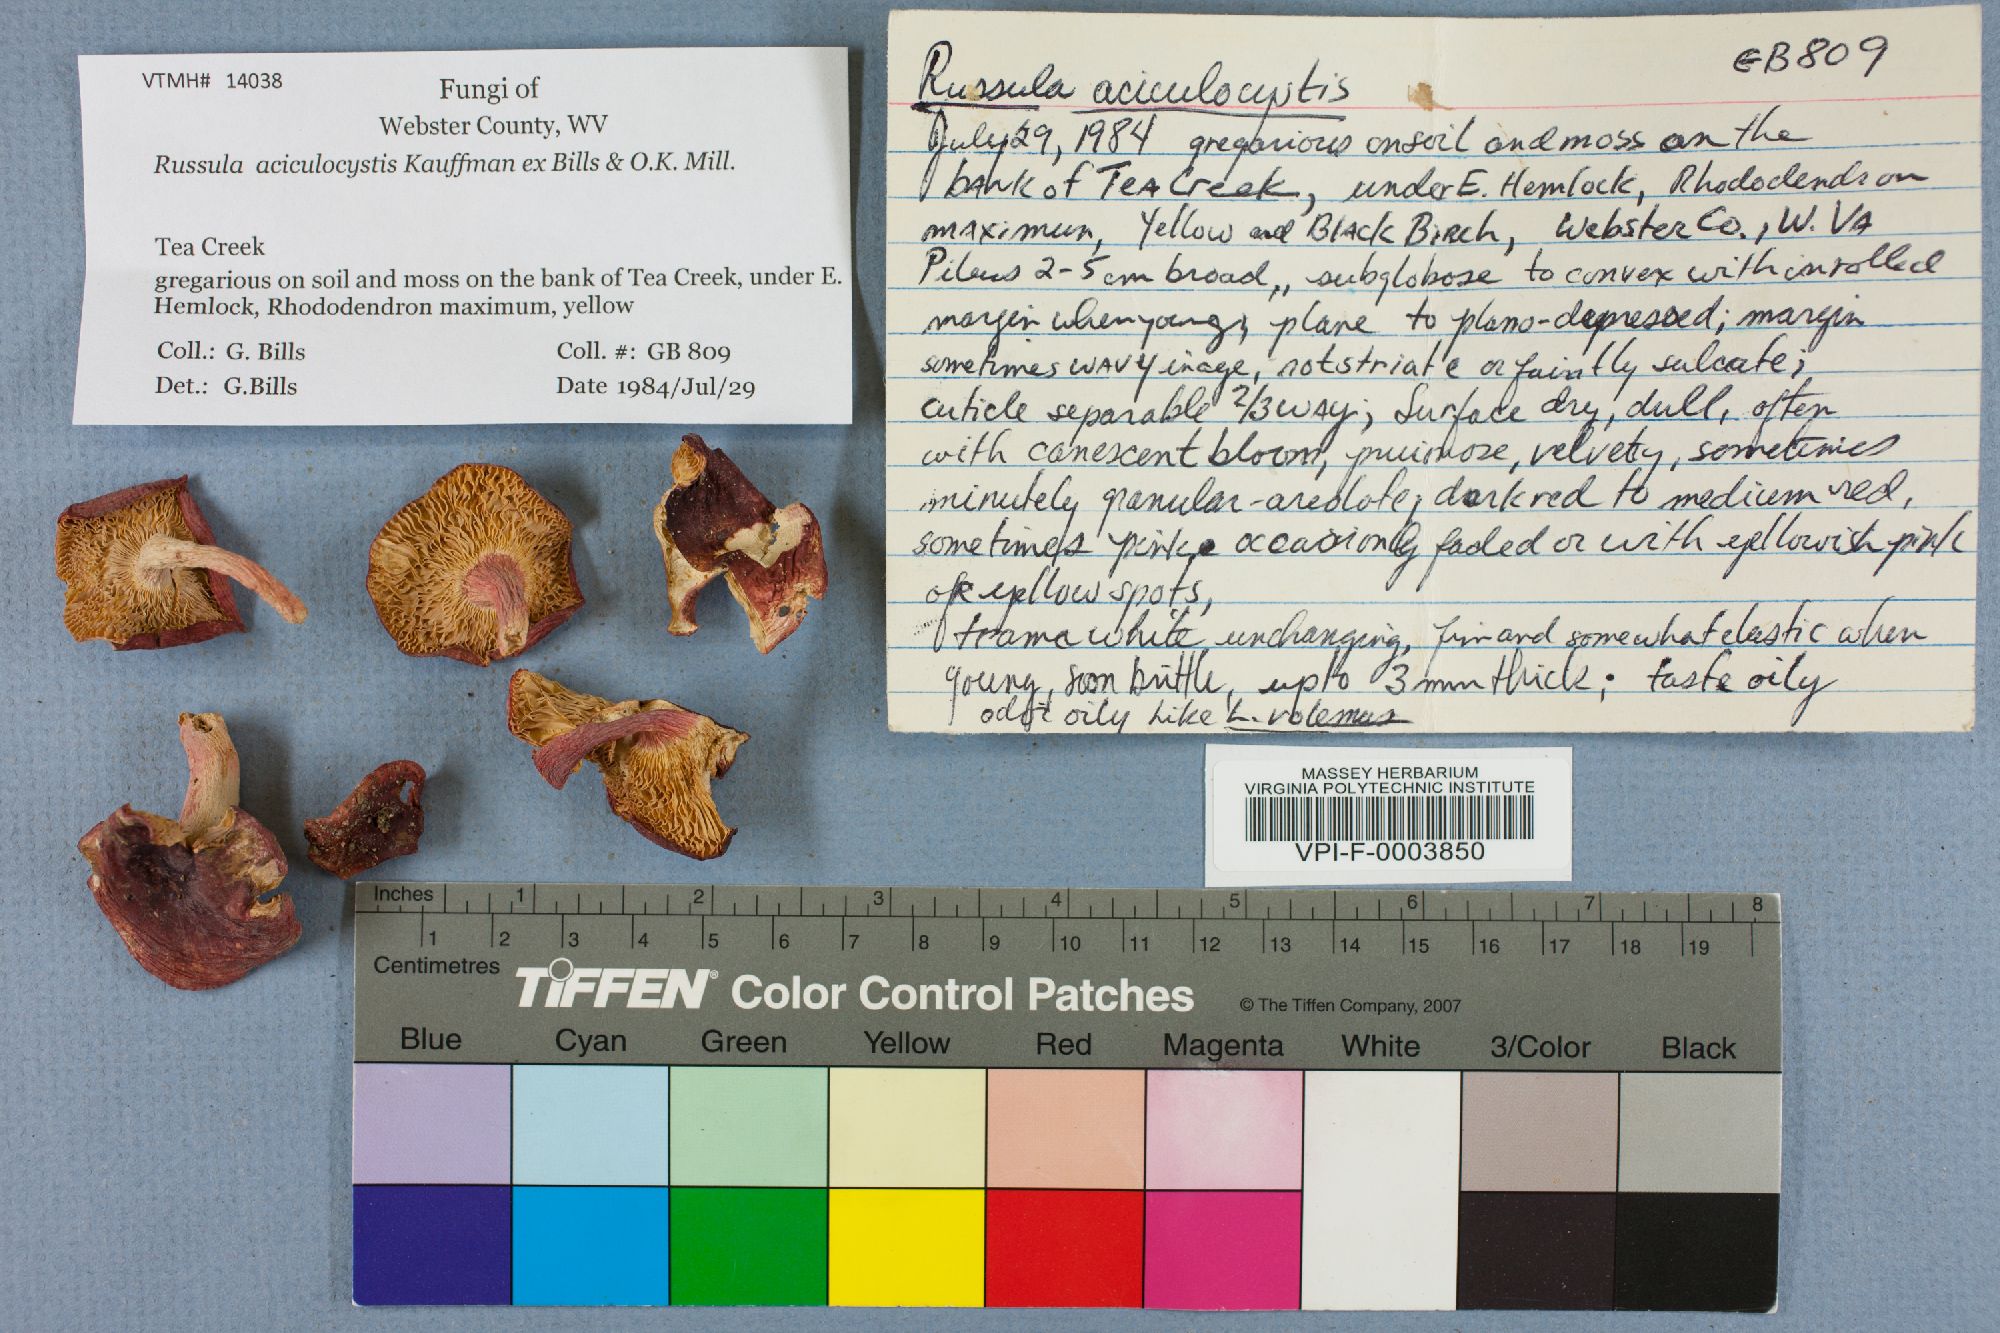 VTMH# 14038
Fungi of
Webster County, WV
Russula aciculocystis Kauffman ex Bills & O.K. Mill.
Tea Creek
gregarious on soil and moss on the bank of Tea Creek, under E.
Hemlock, Rhododendron maximum, yellow
Coll.: G. Bills Coll. #: GB 809
Det.: G.Bills Date 1984/Jul/29
GB809
Russula aciculocystis
July 29, 1984 gregarious on soil and moss on the
bank of Tea Creek, under E. Hemlock, Rhododendron
maximum, Yellow and Black Birch, Webster Co., W. VA
Pileus 2-5 cm broad,, subglobose to convex with inrolled
margin when young, plane to plano-depressed; margin
sometimes wavy in age, not striate or faintly sulcate;
cuticle separable 2/3 way; Surface dry, dull, often
with canescent bloom, pruinose, velvety, sometimes
minutely granular-areolate; dark red to medium red,
sometimes pink, occasionly faded or with yellowish pink
or yellow spots,
trama white unchanging, firm and somewhat elastic when
young, soon brittle, up to 3 mm thick; taste oily
odor oily like L. volemus
MASSEY HERBARIUM
VIRGINIA POLYTECHNIC INSTITUTE
VPI-F-0003850
Inches 1 2 3 4 5 6 7 8
1 2 3 4 5 6 7 8 9 10 11 12 13 14 15 16 17 18 19
Centimetres
TIFFEN® Color Control Patches © The Tiffen Company, 2007
Blue Cyan Green Yellow Red Magenta White 3/Color Black